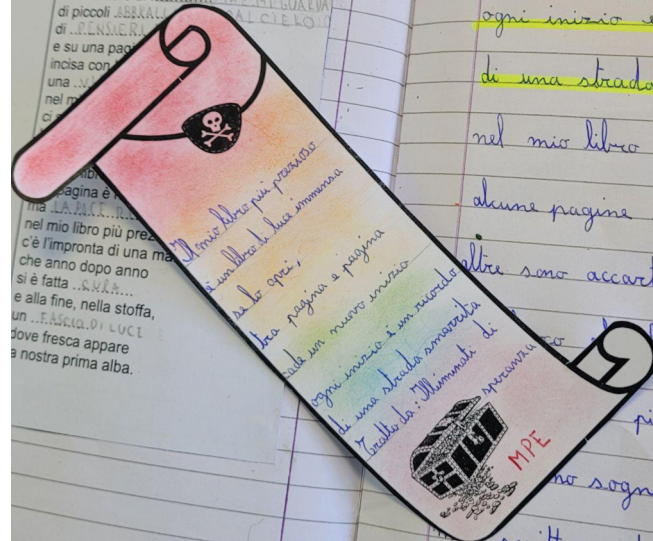 di piccoli
di PENSIERI
e su una pag
incisa con
una
nel m
pagina è
ma LA PACE
nel mio libro più prez
c'è l'impronta di una ma
che anno dopo anno
si è fatta CURA
e alla fine, nella stoffa,
un FASCIO DI LUCI
dove fresca appare
a nostra prima alba.
Il mio libro più prezioso
è un libro di luce immensa
se lo apri,
tra pagina e pagina
cade un nuovo inizio
ogni inizio è un ricordo
di una strada smarrita
Tratto da: Illuminati di
speranza
MPE
ogni inizio è
di una strada
nel mio libro
alcune pagine
altre sono accart
ho sogn